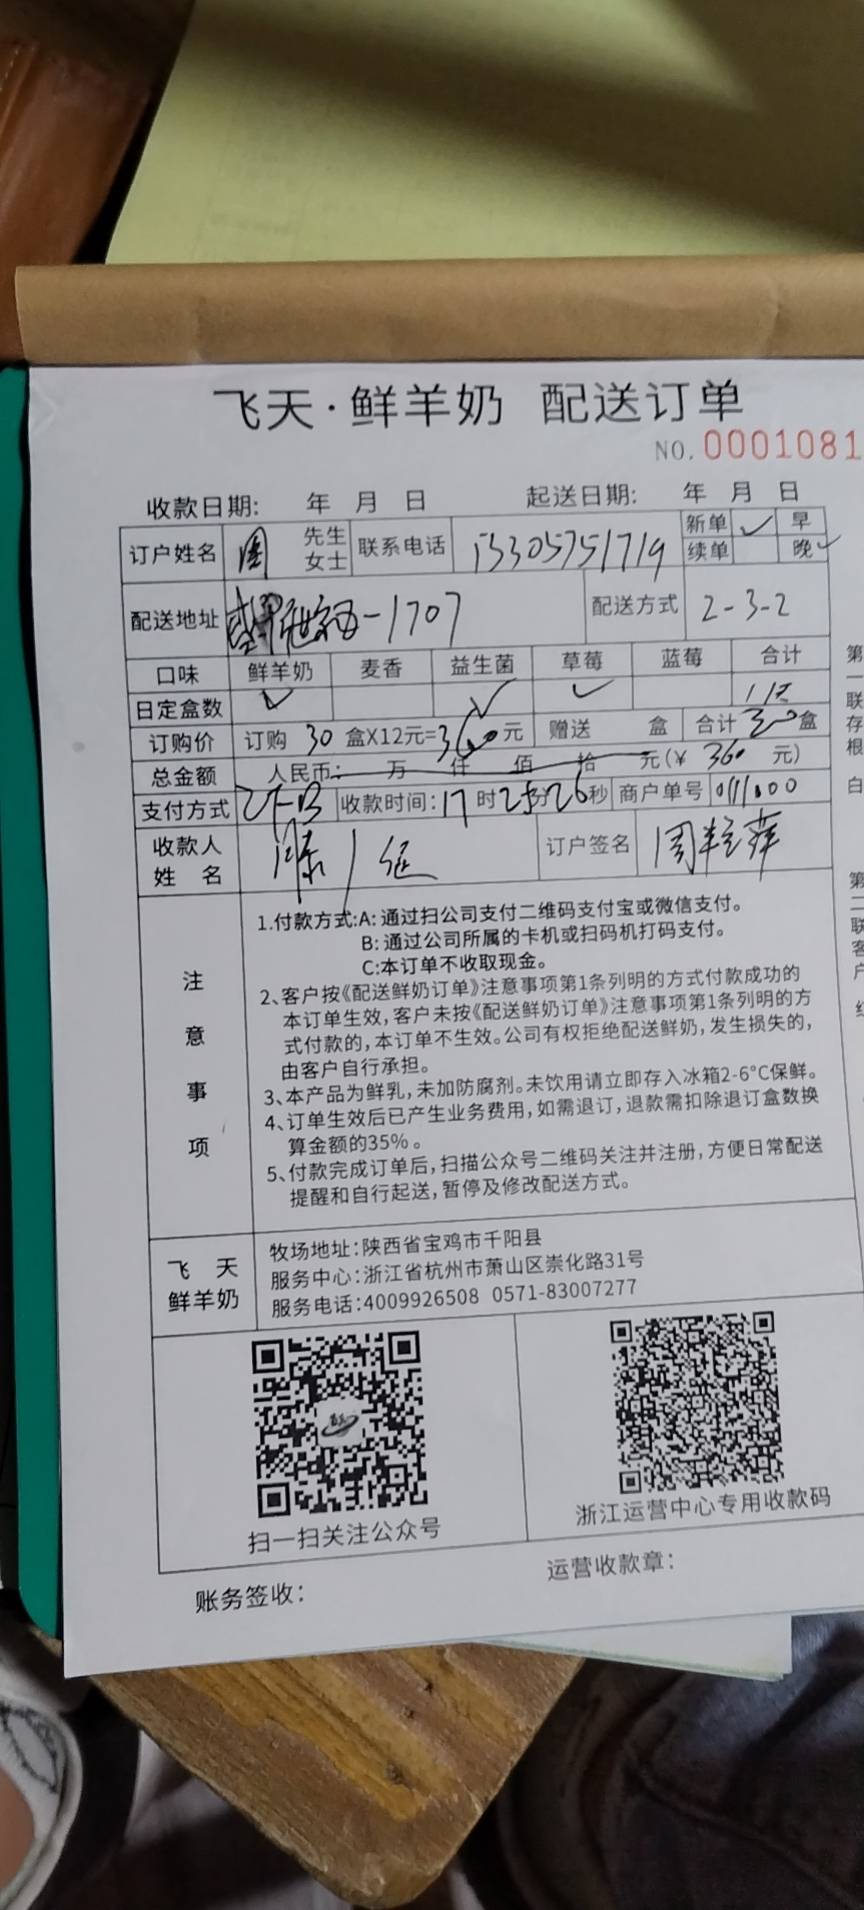 飞天·鲜羊奶 配送订单
NO.0001081
收款日期: 年 月 日 起送日期: 年 月 日
订户姓名 周 先生 女士 联系电话 13305751719 新单 ✓ 早
续单 晚 ✓
配送地址 -1707 配送方式 2-3-2
口味 鲜羊奶 麦香 益生菌 草莓 蓝莓 合计
日定盒数 ✓ ✓ ✓
订购价 订购 30 盒X12元=360元 赠送 盒 合计 30 盒
总金额 人民币: 万 仟 佰 拾 元(¥ 360 元)
支付方式 收款时间: 17时25分26秒 商户单号
收款人 姓 名 订户签名 周
注意事项
1.付款方式:A: 通过扫公司支付二维码支付宝或微信支付。
B: 通过公司所属的卡机或扫码机打码支付。
C:本订单不收取现金。
2、客户按《配送鲜奶订单》注意事项第1条列明的方式付款成功的
本订单生效,客户未按《配送鲜奶订单》注意事项第1条列明的方
式付款的,本订单不生效。公司有权拒绝配送鲜奶,发生损失的,
由客户自行承担。
3、本产品为鲜乳,未加防腐剂。未饮用请立即存入冰箱2-6°C保鲜。
4、订单生效后已产生业务费用,如需退订,退款需扣除退订盒数换
算金额的35%。
5、付款完成订单后,扫描公众号二维码关注并注册,方便日常配送
提醒和自行起送,暂停及修改配送方式。
飞天鲜羊奶
牧场地址:陕西省宝鸡市千阳县
服务中心:浙江省杭州市萧山区崇化路31号
服务电话:4009926508 0571-83007277
扫一扫关注公众号
浙江运营中心专用收款码
账务签收: 运营收款章:
第一联存根 白
第二联客户